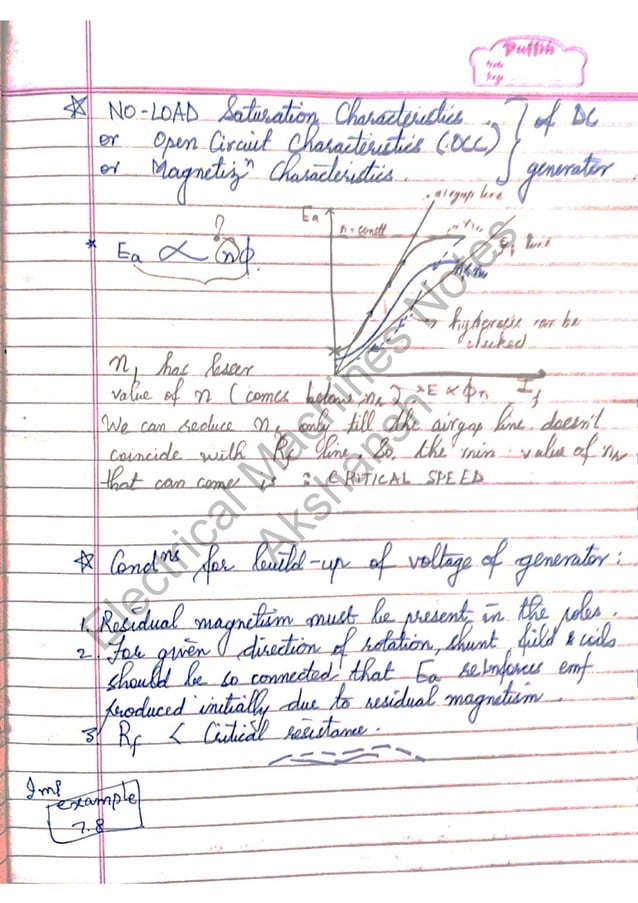 Puffin
Date
Page
☆ NO-LOAD Saturation Characteristics
or Open Circuit Characteristics (OCC)
or Magnetizⁿ Characteristics.
of DC
generator
airgap line
Ea
n = constt
?
* Ea ∝ (n)φ.
line
hysteresis can be
If
n, has lesser
value of n (comes below
E ∝ φn
We can reduce n, only till the airgap line doesn't
coincide with Rf line. So, the min value of
that can come is : CRITICAL SPEED
☆ Condⁿˢ for build-up of voltage of generator:
1. Residual magnetism must be present in the poles.
2. For given direction of rotation, shunt field & coils
should be so connected that Ea reinforces emf
produced initially due to residual magnetism.
3. Rf < Critical resistance.
Imp
example
7.8
Electrical Machines Notes
Akshansh